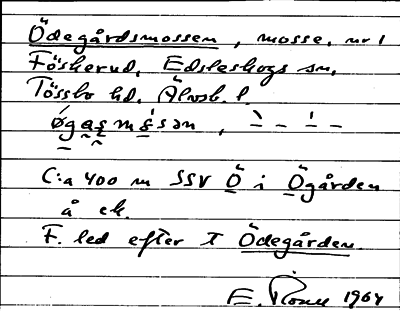 Ödegårdsmossen, mosse, nr 1
Föskerud, Edsleskogs sn,
Tössbo hd, Älvsb. l.
øgaṣmṣ̀sən, `- – '- –
C:a 400 m SSV Ö i Ögården
å ek.
F. led efter T Ödegården
E. 1964